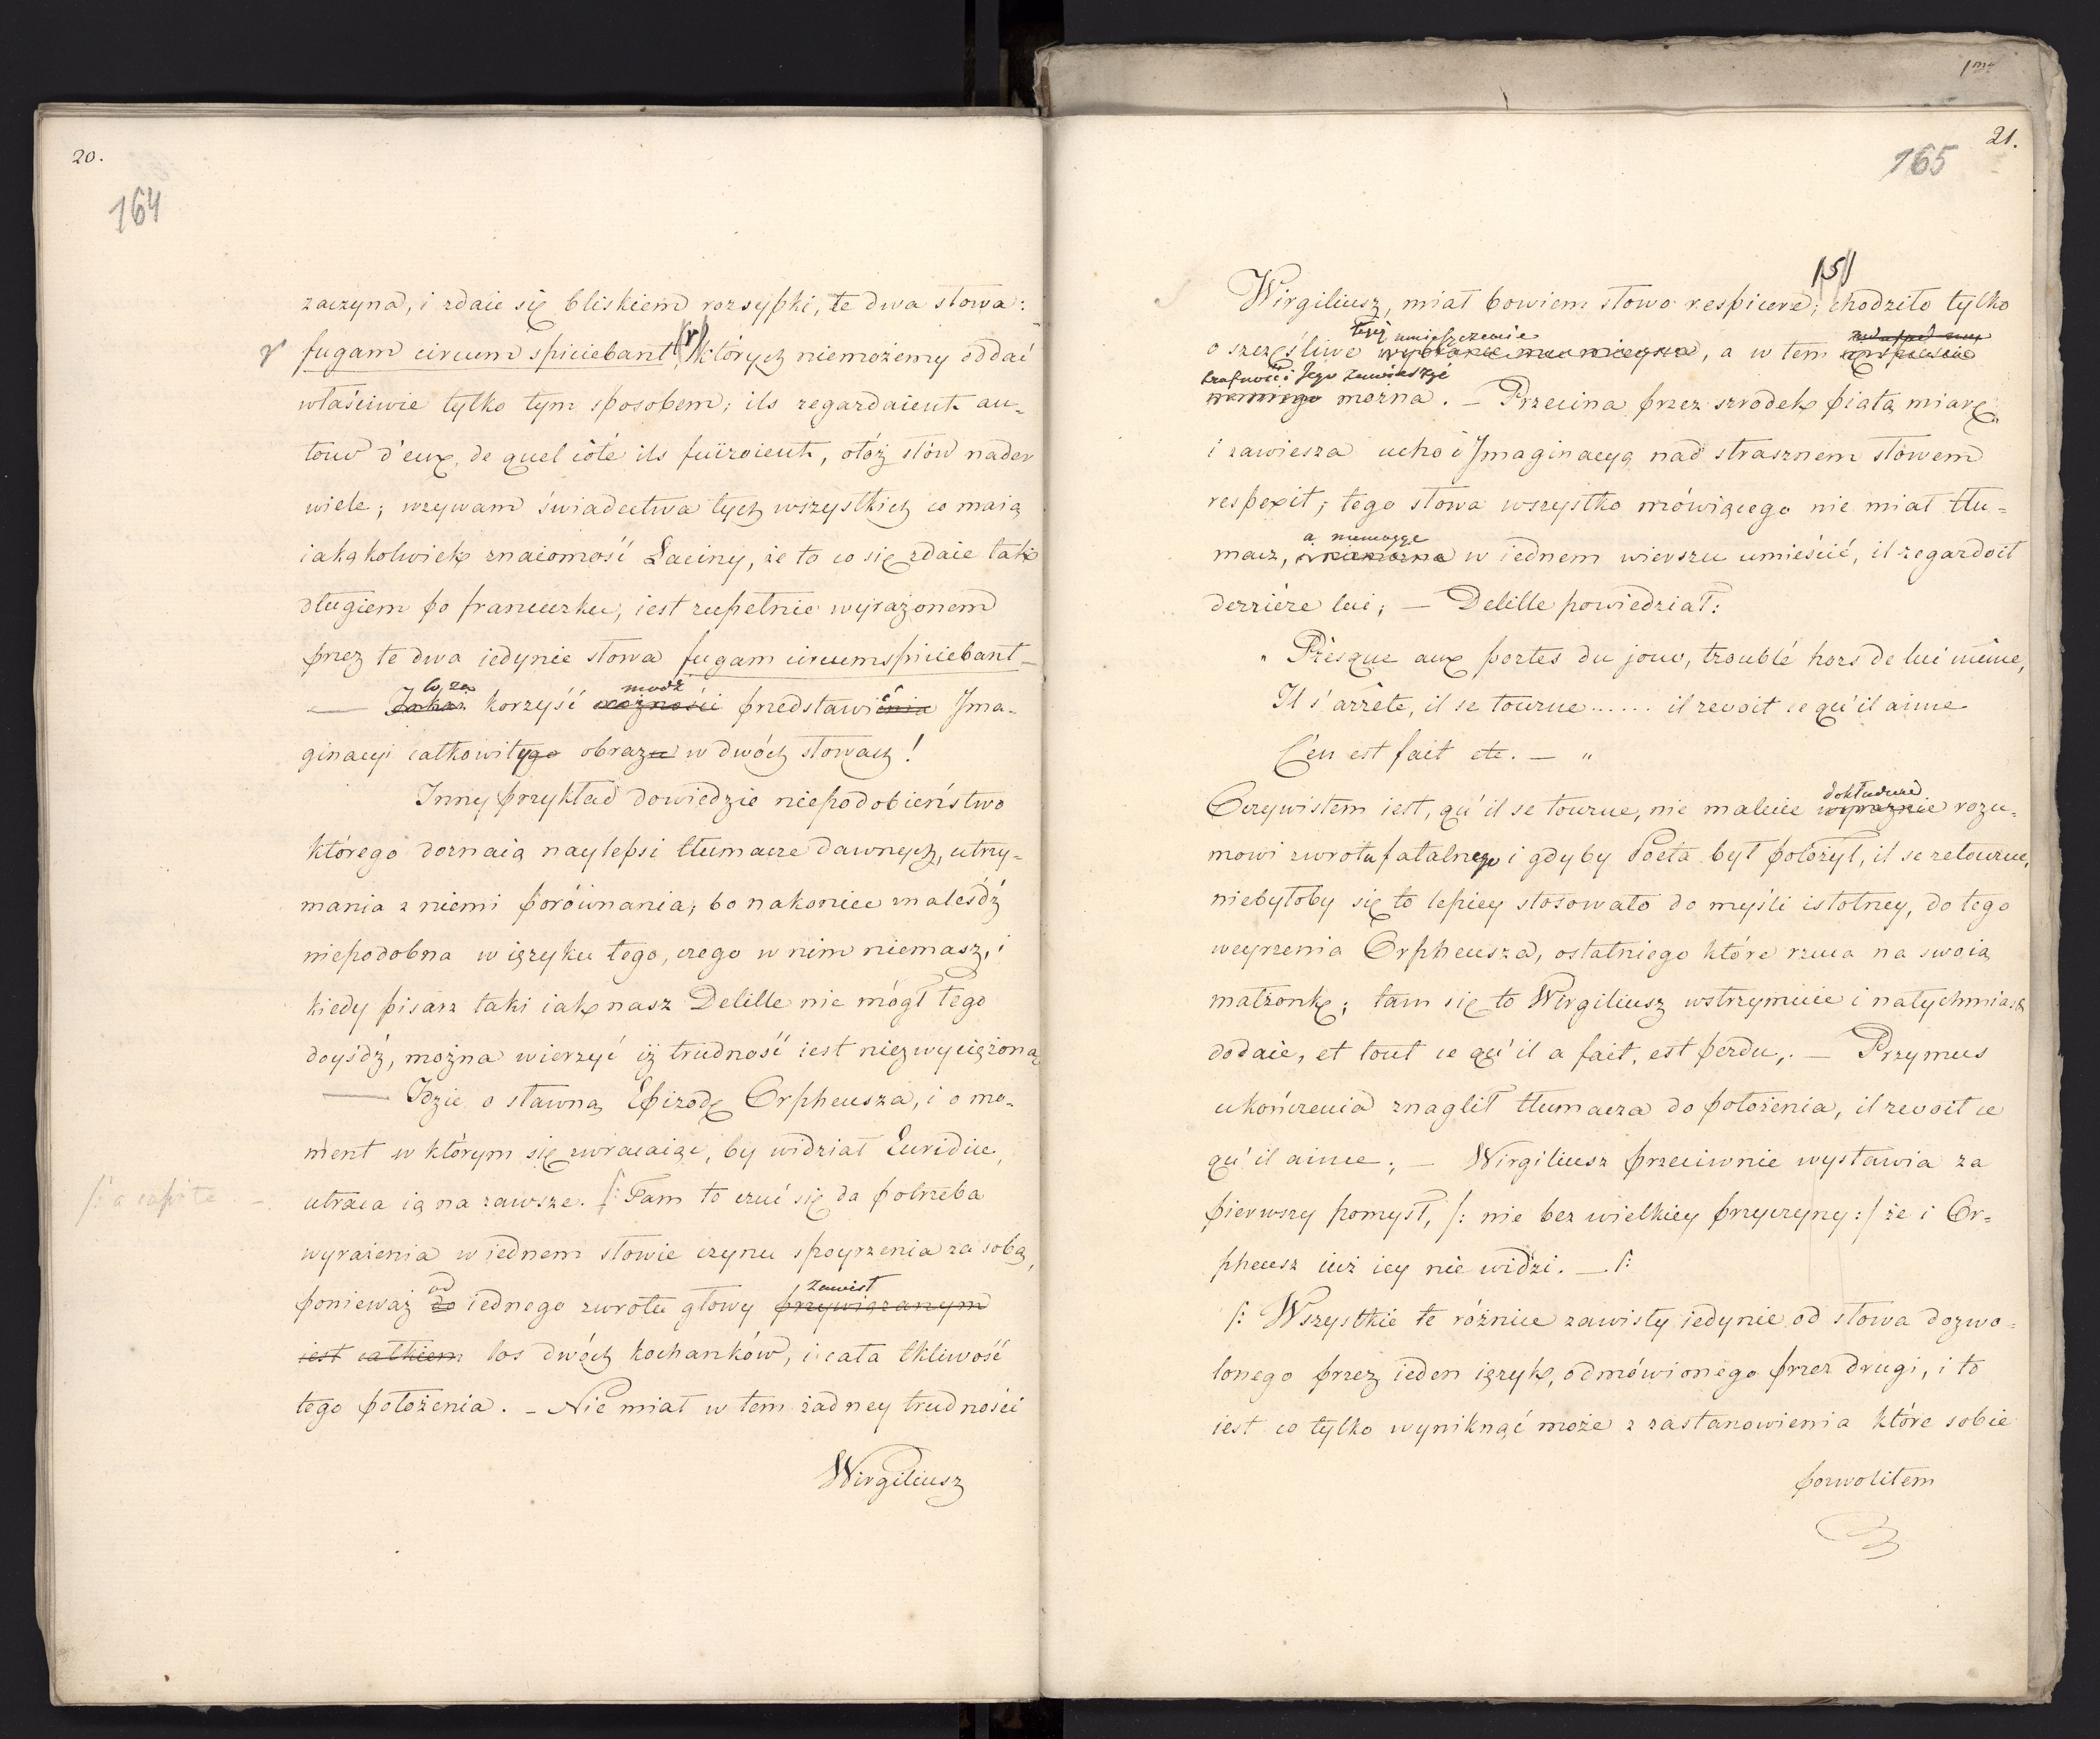 20.
164
zaczyna, i zdaie się bliskiem rozsypki, te dwa słowa:
r fugam circum spiciebant (r) których niemożemy oddać
właściwie tylko tym sposobem; ils regardaient au-
tour d'eux, de quel côté ils fuiroient, otóż słów nader
wiele; wzywam świadectwa tych wszystkich co maią
iakąkolwiek znaiomość Łaciny, że to co się zdaie tak
długiem po francuzku, iest zupełnie wyrażonem
przez te dwa iedynie słowa fugam circumspiciebant_
Co za módz
— Jakaż korzyść możności przedstawić Ima-
ginacyi całkowitygo obrazu w dwóch słowach!
Inny przykład dowiedzie niepodobieństwo
którego doznaią naylepsi tłumacze dawnych, utrzy-
mania z niemi porównania; bo nakoniec znaleśdź
niepodobna w ięzyku tego, czego w nim niemasz, i
kiedy pisarz taki iak nasz Delille nie mógł tego
doyśdź, można wierzyć iż trudność iest niezwyciężoną
— Idzie o sławną Epizodę Orpheusza, i o mo-
ment w którym się zwracaiąc, by widział Euridice,
/: a capite utraca ią na zawsze. /: Tam to czuć się da potrzeba
wyrażenia w iednem słowie czynu spoyrzenia za sobą,
od zawisł
ponieważ do iednego zwrotu głowy przywiązanym
iest całkiem los dwóch kochanków, i cała tkliwość
tego położenia. _ Nie miał w tem żadney trudności
Wirgiliusz
21.
165
(s)
Wirgiliusz, miał bowiem słowo respicere; chodziło tylko
tegoż umieszczenie
o szczęśliwe wybranie mu mieysca, a w tem
trafności Jego zawierzyć
można. _ Przecina przez szrodek piątą miarę
i zawiesza ucho i Imaginacyą nad strasznem słowem
respexit; tego słowa wszystko mówiącego nie miał tłu=
a niemogąc
macz, i niemożna w iednem wierszu umieścić, il regardoit
derriére lui; — Delille powiedział:
" Présque aux portes du jour, troublé hors de lui même,
Il s'arrête, il se tourne ...... il revoit ce qu'il aime
C'en est fait etc. — "
dokładnie
Oczywistem iest, qu'il se tourne, nie maluie wyraznie rozu-
mowi zwrotu fatalnego i gdyby Poeta był położył, il se retourne,
niebyłoby się to lepiey stosowało do myśli istotney, do tego
weyrzenia Orpheusza, ostatniego które rzuca na swoią
małżonkę; tam się to Wirgiliusz wstrzymuie i natychmiast
dodaie, et tout ce qu'il a fait, est perdu,. — Przymus
ukończenia znaglił tłumacza do położenia, il revoit ce
qu'il aime; — Wirgiliusz przeciwnie wystawia za
pierwszy pomysł, /: nie bez wielkiey przyczyny:/ że i Or=
pheusz iuż iey nie widzi. _ /:
/: Wszystkie te różnice zawisły iedynie od słowa dozwo=
lonego przez ieden ięzyk, odmówionego przez drugi, i to
iest co tylko wyniknąć może z zastanowienia które sobie
pozwoliłem